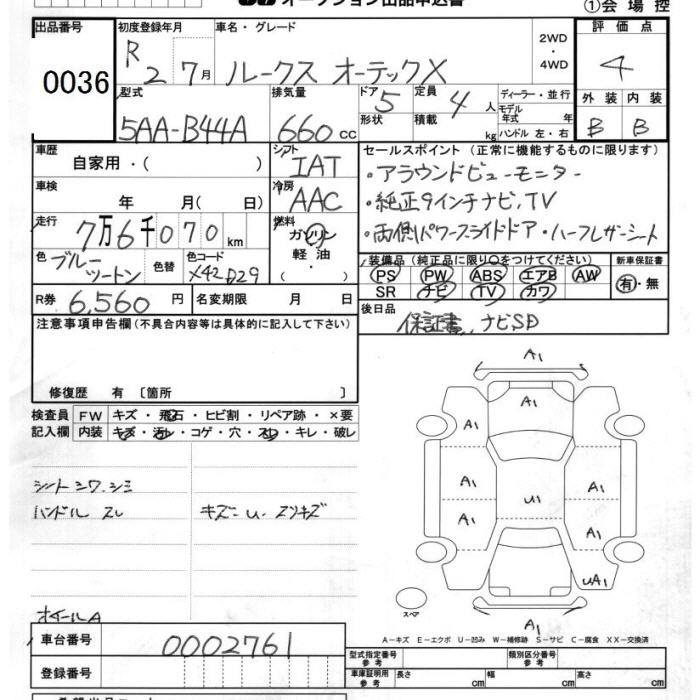 オークション出品申込書
①会場控
出品番号
0036
初度登録年月
R 2 7月
車名・グレード
ルークス オーテックX
2WD
・
4WD
評価点
4
型式
5AA-B44A
排気量
660 cc
ドア 5
形状
定員 4 人
積載 kg
ディーラー・並行
モデル年式 年
ハンドル 左・右
外装 内装
B B
車歴
自家用・( )
シフト
IAT
セールスポイント(正常に機能するものに限ります)
・アラウンドビューモニター
・純正9インチナビ,TV
・両側パワースライドドア・ハーフレザーシート
車検
年 月( 日)
冷房
AAC
走行
7万6千070km
燃料
ガソリン
軽油
・
色 ブルーツートン
色替
色コード
X42 D29
装備品(純正品に限り○をつけてください)
PS PW ABS エアB AW
SR ナビ TV カワ
新車保証書
有・無
R券 6,560円
名変期限 月 日
後日品
保証書、ナビSD
注意事項申告欄(不具合内容等は具体的に記入して下さい)
修復歴 有 〔箇所 〕
検査員記入欄
FW キズ・飛石・ヒビ割・リペア跡・×要
内装 キズ・汚レ・コゲ・穴・スレ・キレ・破レ
シートシワ.シミ
ハンドルスレ
キズ- U- スリキズ
ホイールA
A1
A1
A1
A1
A1
A1
U1
A1
A1
UA1
A1
スペア
A-キズ E-エクボ U-凹み W-補修跡 S-サビ C-腐食 XX-交換済
車台番号
0002761
登録番号
型式指定番号
参考
類別区分番号
参考
車庫証明用
参考
長さ cm
幅 cm
高さ cm